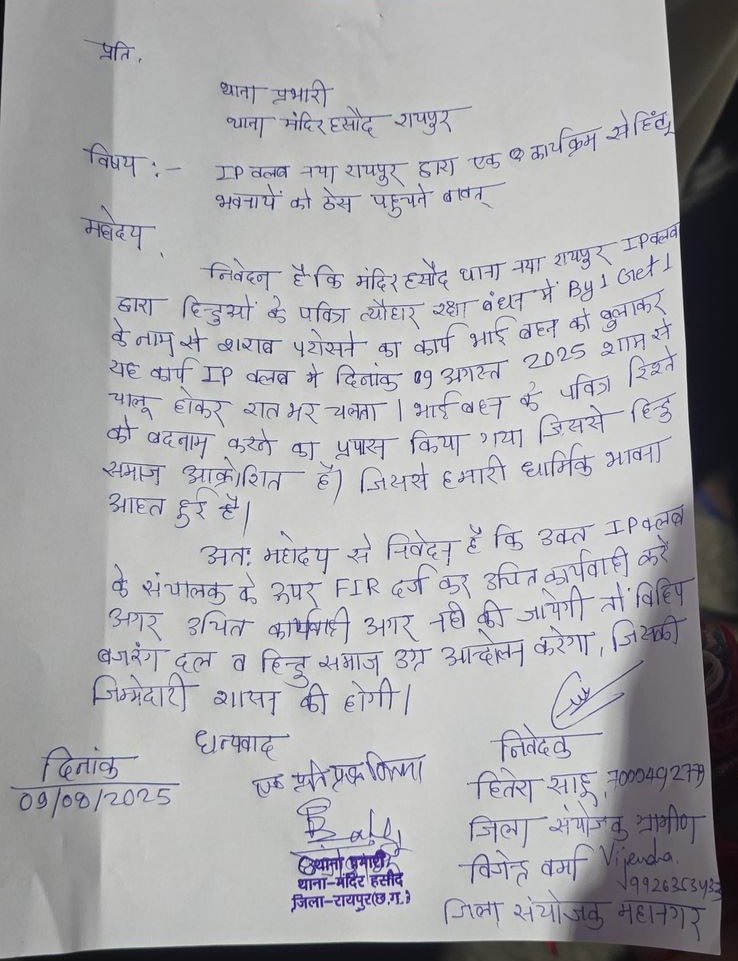 प्रति,
थाना प्रभारी
थाना मंदिर हसौद रायपुर
विषय :- IP क्लब नया रायपुर द्वारा एक कार्यक्रम से हिंदू
भवनायें को ठेस पहुचने बाबत्
महोदय,
निवेदन है कि मंदिर हसौद थाना नया रायपुर IP क्लब
द्वारा हिन्दुओं के पवित्र त्यौहार रक्षा बंधन में By 1 Get 1
के नाम से शराब परोसने का कार्य भाई बहन को बुलाकर
यह कार्य IP क्लब मे दिनांक 09 अगस्त 2025 शाम से
चालू होकर रात भर चलता। भाई बहन के पवित्र रिश्ते
को बदनाम करने का प्रयास किया गया जिससे हिन्दु
समाज आक्रोशित है। जिससे हमारी धार्मिक भावना
आहत हुई है।
अतः महोदय से निवेदन है कि उक्त IP क्लब
के संचालक के ऊपर FIR दर्ज कर उचित कार्यवाही करें
अगर उचित कार्यवाही अगर नही की जायेगी तो विहिप
बजरंग दल व हिन्दु समाज उग्र आन्दोलन करेगा, जिसकी
जिम्मेदारी शासन की होगी।
धन्यवाद
दिनांक
09/08/2025
एक प्रति प्राप्त किया
थाना प्रभारी
थाना-मंदिर हसौद
जिला-रायपुर(छ.ग.)
निवेदक
हितेश साहू, 7000492779
जिला संयोजक ग्रामीण
विजेन्द्र वर्मा Vijendra
जिला संयोजक महानगर